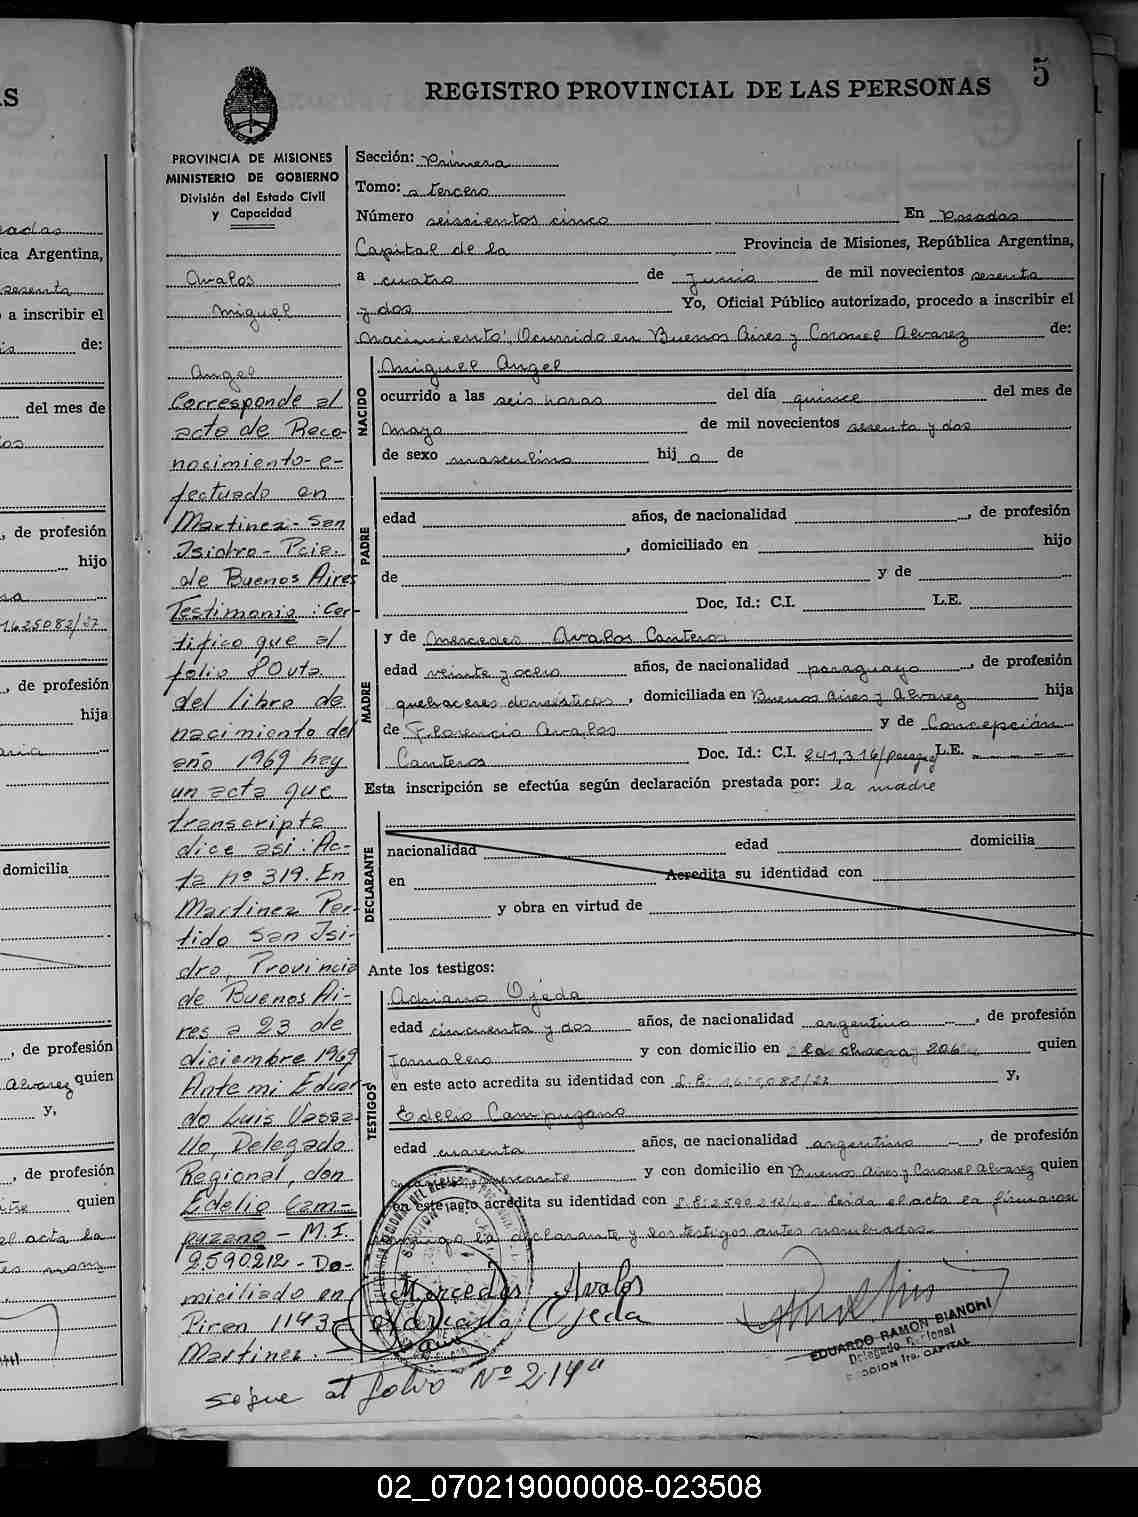 5
REGISTRO PROVINCIAL DE LAS PERSONAS
PROVINCIA DE MISIONES
MINISTERIO DE GOBIERNO
División del Estado Civil
y Capacidad
Avalos
Miguel
Angel
Corresponde al
acta de Reco-
nocimiento e-
fectuado en
Martinez - San
Isidro - Pcia.
de Buenos Aires
Testimonio: Cer-
tifico que al
folio 80 vta
del libro de
nacimiento del
año 1969 hay
un acta que
transcripta
dice asi: Ac-
ta nº 319. En
Martinez Par-
tido San Isi-
dro, Provincia
de Buenos Ai-
res a 23 de
diciembre 1969
Ante mi Eduar-
do Luis Vassa-
llo, Delegado
Regional, don
Edelio Cam-
puzano - M.I.
2.590.212 - Do-
miciliado en
Piran 1143 -
Martinez.
segue al folio Nº 214"
Sección: Primera
Tomo: a tercero
Número seiscientos cinco En Posadas
Capital de la Provincia de Misiones, República Argentina,
a cuatro de Junio de mil novecientos sesenta
y dos Yo, Oficial Público autorizado, procedo a inscribir el
nacimiento, Ocurrido en Buenos Aires y Coronel Alvarez de:
NACIDO
Miguel Angel
ocurrido a las seis horas del día quince del mes de
mayo de mil novecientos sesenta y dos
de sexo masculino hij o de
PADRE
edad años, de nacionalidad , de profesión
, domiciliado en hijo
de y de
Doc. Id.: C.I. L.E.
MADRE
y de Mercedes Avalos Canteros
edad veinte y ocho años, de nacionalidad paraguaya , de profesión
quehaceres domésticos , domiciliada en Buenos Aires y Alvarez hija
de Florencio Avalos y de Concepción
Canteros Doc. Id.: C.I. 241.316/parag L.E.
Esta inscripción se efectúa según declaración prestada por: la madre
DECLARANTE
nacionalidad edad domicilia
en Acredita su identidad con
y obra en virtud de
Ante los testigos:
TESTIGOS
Adriano Ojeda
edad cincuenta y dos años, de nacionalidad argentino , de profesión
Jornalero y con domicilio en la chacra 206 quien
en este acto acredita su identidad con L.E. 1625082/27 y,
Edelio Campuzano
edad cuarenta años, de nacionalidad argentino , de profesión
y con domicilio en Buenos Aires y Coronel Alvarez quien
en este acto acredita su identidad con L.E. 2590212/40 Leida el acta la firmaron
conmigo la declarante y los testigos antes nombrados
Mercedes Avalos
Adriano Ojeda
EDUARDO RAMON BIANCHI
Delegado Regional
SECCION 1ra. CAPITAL
02_070219000008-023508